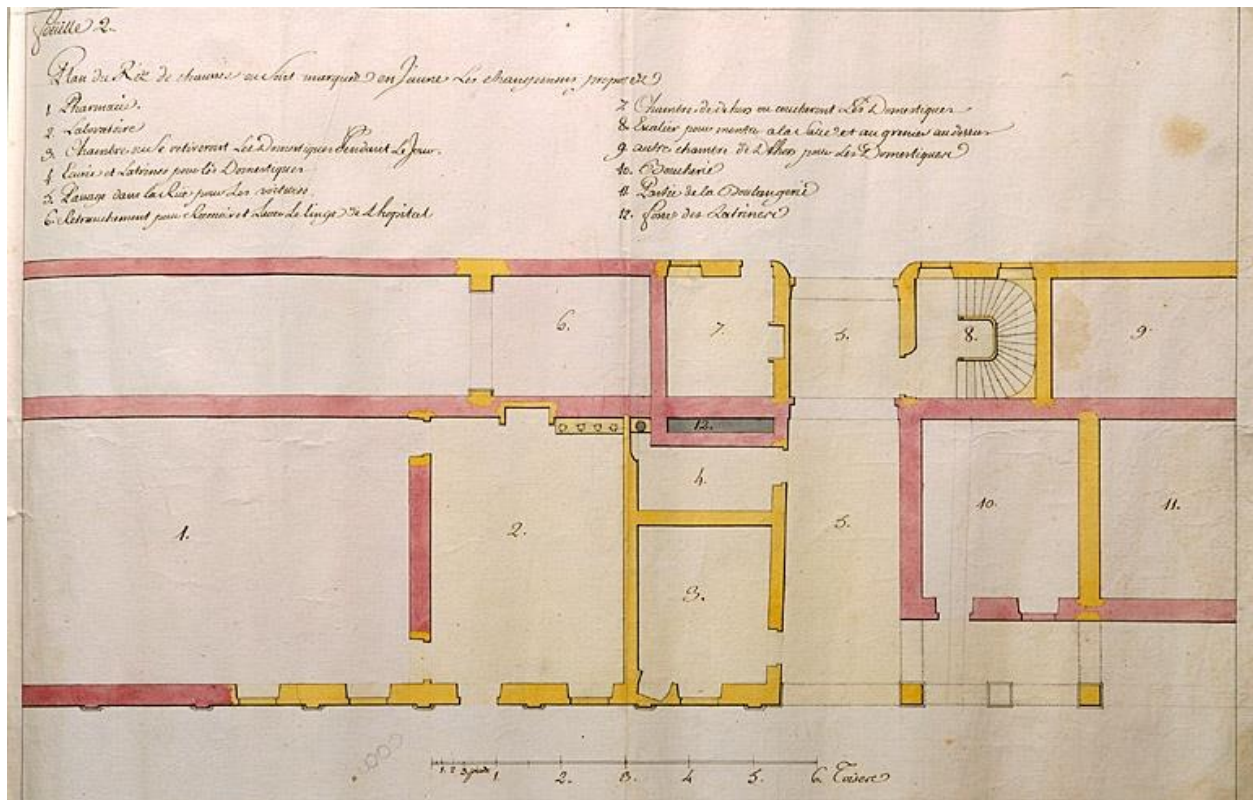 feuille 2.
Plan du Réz de chaussé ou sont marqués en Jaune Les changemens proposés
1 Pharmacie.
2. Laboratoire
3. Chambre ou se retireront Les Domestiques Pendant Le Jour.
4 Ecurie et Latrines pour les Domestiques
5. Passage dans la Rue pour Les voitures
6. Retranchement pour et Laver Le linge de L'hopital
7 Chambre de dehors ou coucheront Les Domestiques
8. Escalier pour monter a la et au grenier au dessus
9 autre chambre de pour Les Domestiques
10. Boucherie
11. Partie de la Boulangerie
12. fosse des Latrines
6.
7.
5.
8.
9.
12.
4.
1.
2.
5.
10.
11.
3.
1 2 3 pieds 1. 2. 3. 4 5. 6 Toises